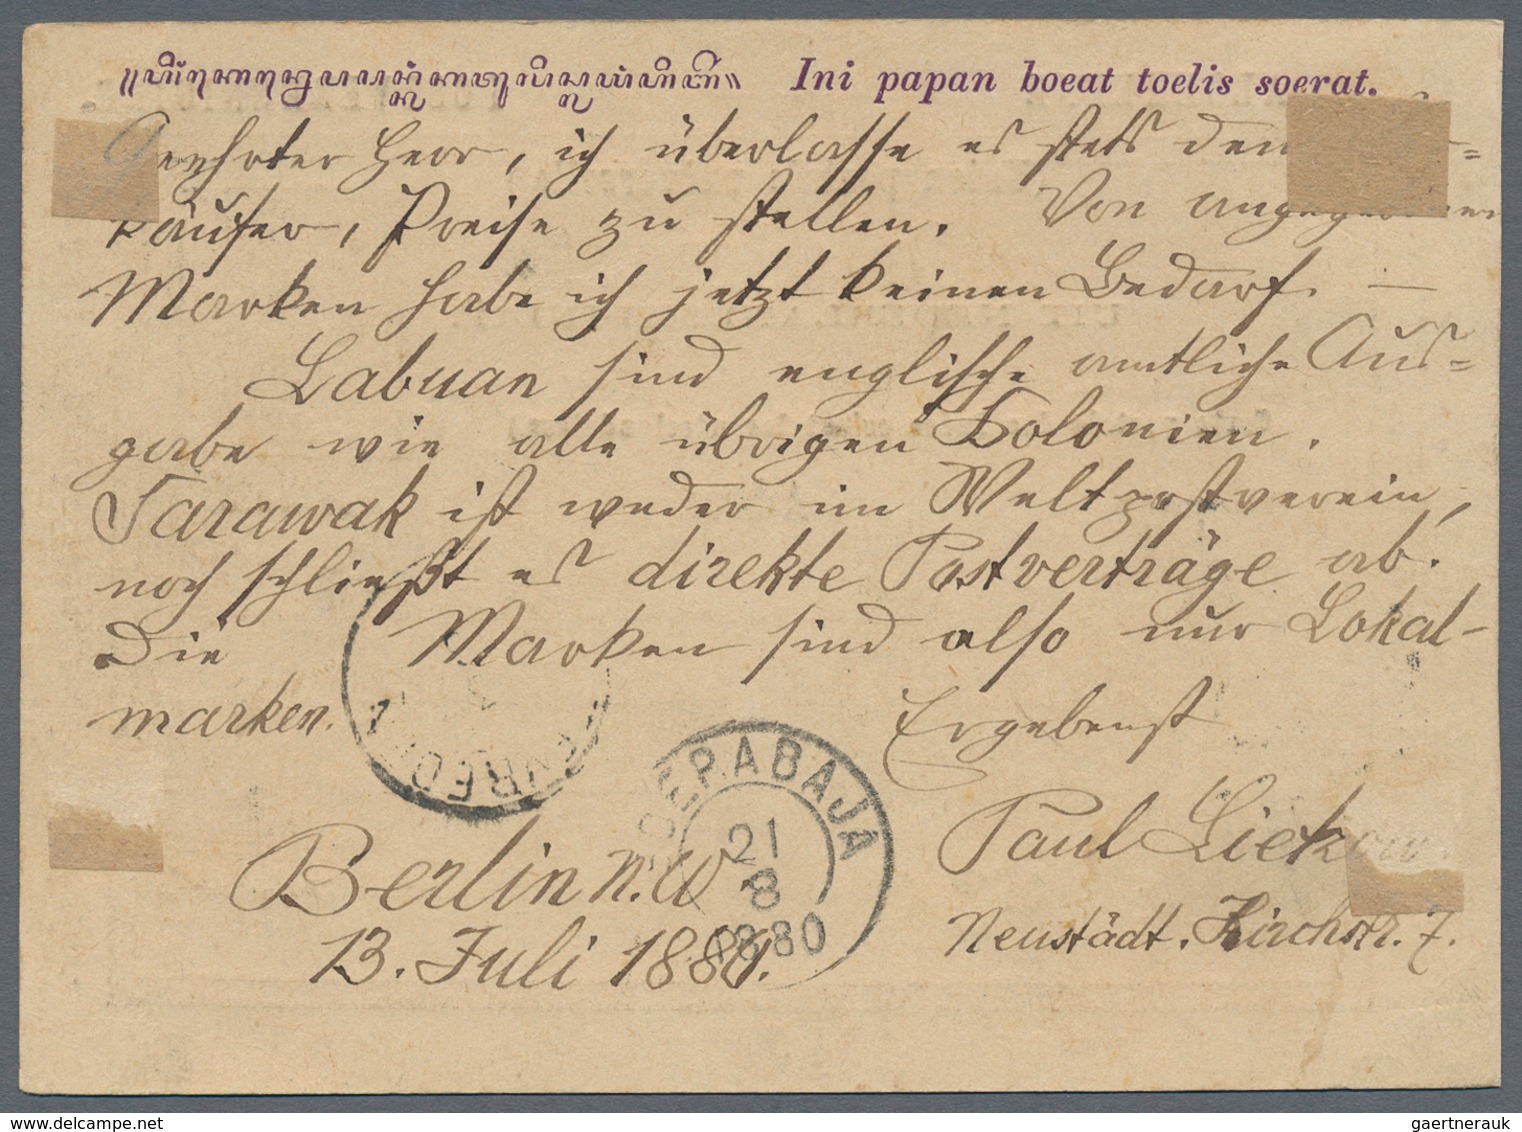 Ini papan boeat toelis soerat.
Geehrter Herr, ich überlasse es stets dem
käufer, Preise zu stellen. Von angegebenen
Marken habe ich jetzt keinen Bedarf. —
Labuan sind englische amtliche Aus=
gabe wie alle übrigen Kolonien.
Sarawak ist weder im Weltpostverein,
noch schließt es direkte Postverträge ab.
Die Marken sind also nur Lokal-
marken. Ergebenst
SOERABAJA
21
8
1880
Paul
Berlin N.W.
Neustädt. Kirchstr. 7.
13. Juli 1880.
gaertnerauk